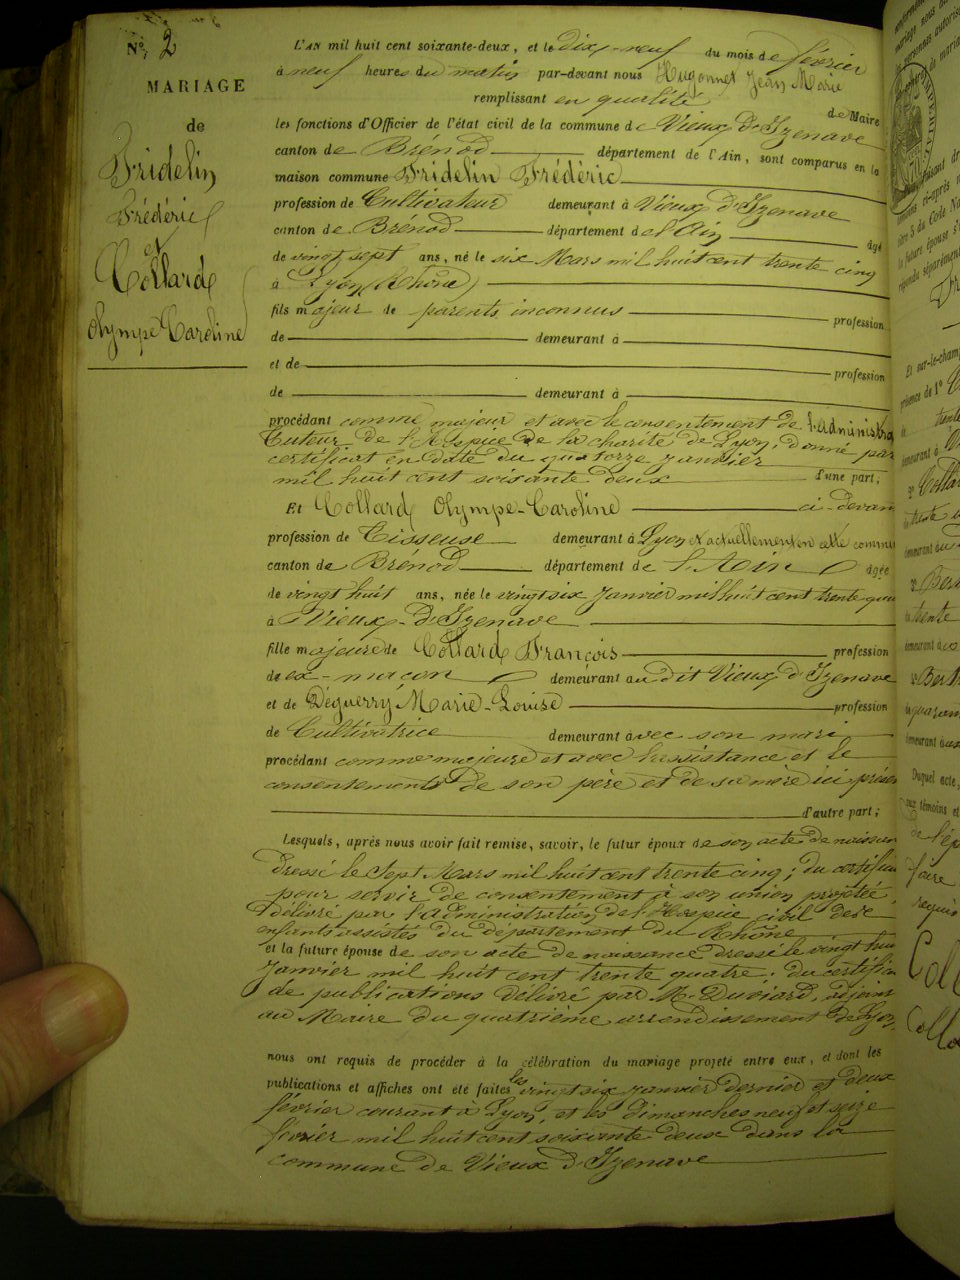 N° 2
MARIAGE
de
Fridelin
Frédéric
et
Collard
Olympe Caroline
L'AN mil huit cent soixante-deux, et le dix-neuf du mois de février
à neuf heures du matin par-devant nous Hugonnet Jean Marie
remplissant en qualité de Maire
les fonctions d'Officier de l'état civil de la commune de Vieux d'Izenave
canton de Brénod département de l'Ain, sont comparus en la
maison commune Fridelin Frédéric
profession de Cultivateur demeurant à Vieux d'Izenave
canton de Brénod département de l'Ain âgé
de vingt sept ans, né le six Mars mil huit cent trente cinq
à Lyon (Rhône)
fils majeur de parents inconnus profession
de demeurant à
et de profession
de demeurant à
procédant comme majeur et avec le consentement de l'administra
tuteur de l'Hospice de la charité de Lyon, donné par
certificat en date du quatorze janvier
mil huit cent soixante deux d'une part;
Et Collard Olympe-Caroline ci-devan
profession de Tisseuse demeurant à Lyon et actuellement en cette commu
canton de Brénod département de l'Ain âgée
de vingt huit ans, née le vingt six janvier mil huit cent trente qua
à Vieux-d'Izenave
fille majeure de Collard François profession
de ex-maçon demeurant au dit Vieux d'Izenave
et de Déguerry Marie-Louise profession
de Cultivatrice demeurant avec son mari
procédant comme majeure et avec l'assistance et le
consentement de son père et de sa mère ici présen
d'autre part;
Lesquels, après nous avoir fait remise, savoir, le futur époux de son acte de naissan
dressé le sept Mars mil huit cent trente cinq; du certificat
pour servir de consentement à son union projetée,
délivré par l'administration de l'Hospice civil des
enfants assistés du département du Rhône
et la future épouse de son acte de naissance dressé le vingt huit
janvier mil huit cent trente quatre; du certifica
de publications délivré par M. Duviard, adjoint
au Maire du quatrième arrondissement de Lyon,
nous ont requis de procéder à la célébration du mariage projeté entre eux, et dont les
publications et affiches ont été faites les vingt six janvier dernier et deux
février courant à Lyon, et les dimanches neuf et seize
février mil huit cent soixante deux dans la
commune de Vieux d'Izenave